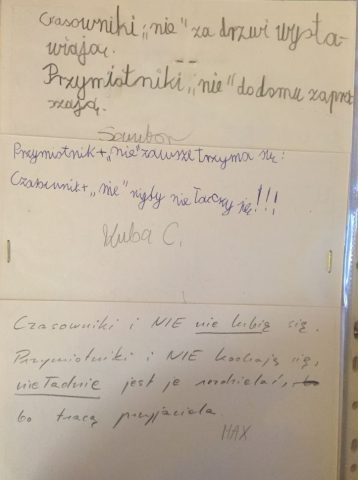 Czasowniki „nie" za drzwi wysta-
wiają.
Przymiotniki „nie" do domu zapra-
szają.
Sambor
Przymiotnik + „nie" zawsze trzyma się:
Czasownik + „nie" nigdy nie łączy się!!!
Kuba C.
Czasowniki i NIE nie lubią się.
Przymiotniki i NIE kochają się,
nieładnie jest je rozdzielać,
bo tracą przyjaciela.
MAX